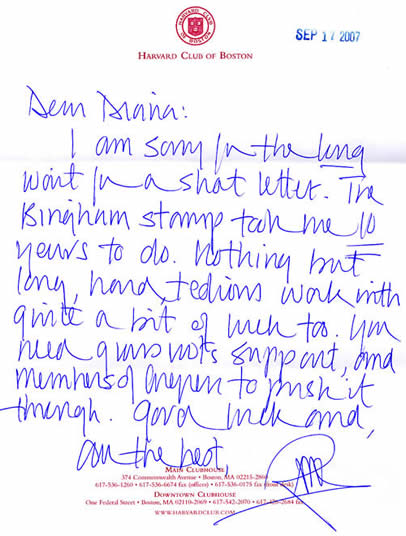 HARVARD CLUB
OF BOSTON
HARVARD CLUB OF BOSTON
SEP 17 2007
Dear Diana:
I am sorry for the long
wait for a short letter. The
Bingham stamp took me 10
years to do. Nothing but
long, hard, tedious work with
quite a bit of luck too. You
need grass roots support, and
members of Congress to push it
through. Good luck and,
all the best,
MAIN CLUBHOUSE
374 Commonwealth Avenue • Boston, MA 02215-2804
617-536-1260 • 617-536-6674 fax (offices) • 617-536-0175 fax (front desk)
DOWNTOWN CLUBHOUSE
One Federal Street • Boston, MA 02110-2069 • 617-542-2070 • fax
WWW.HARVARDCLUB.COM